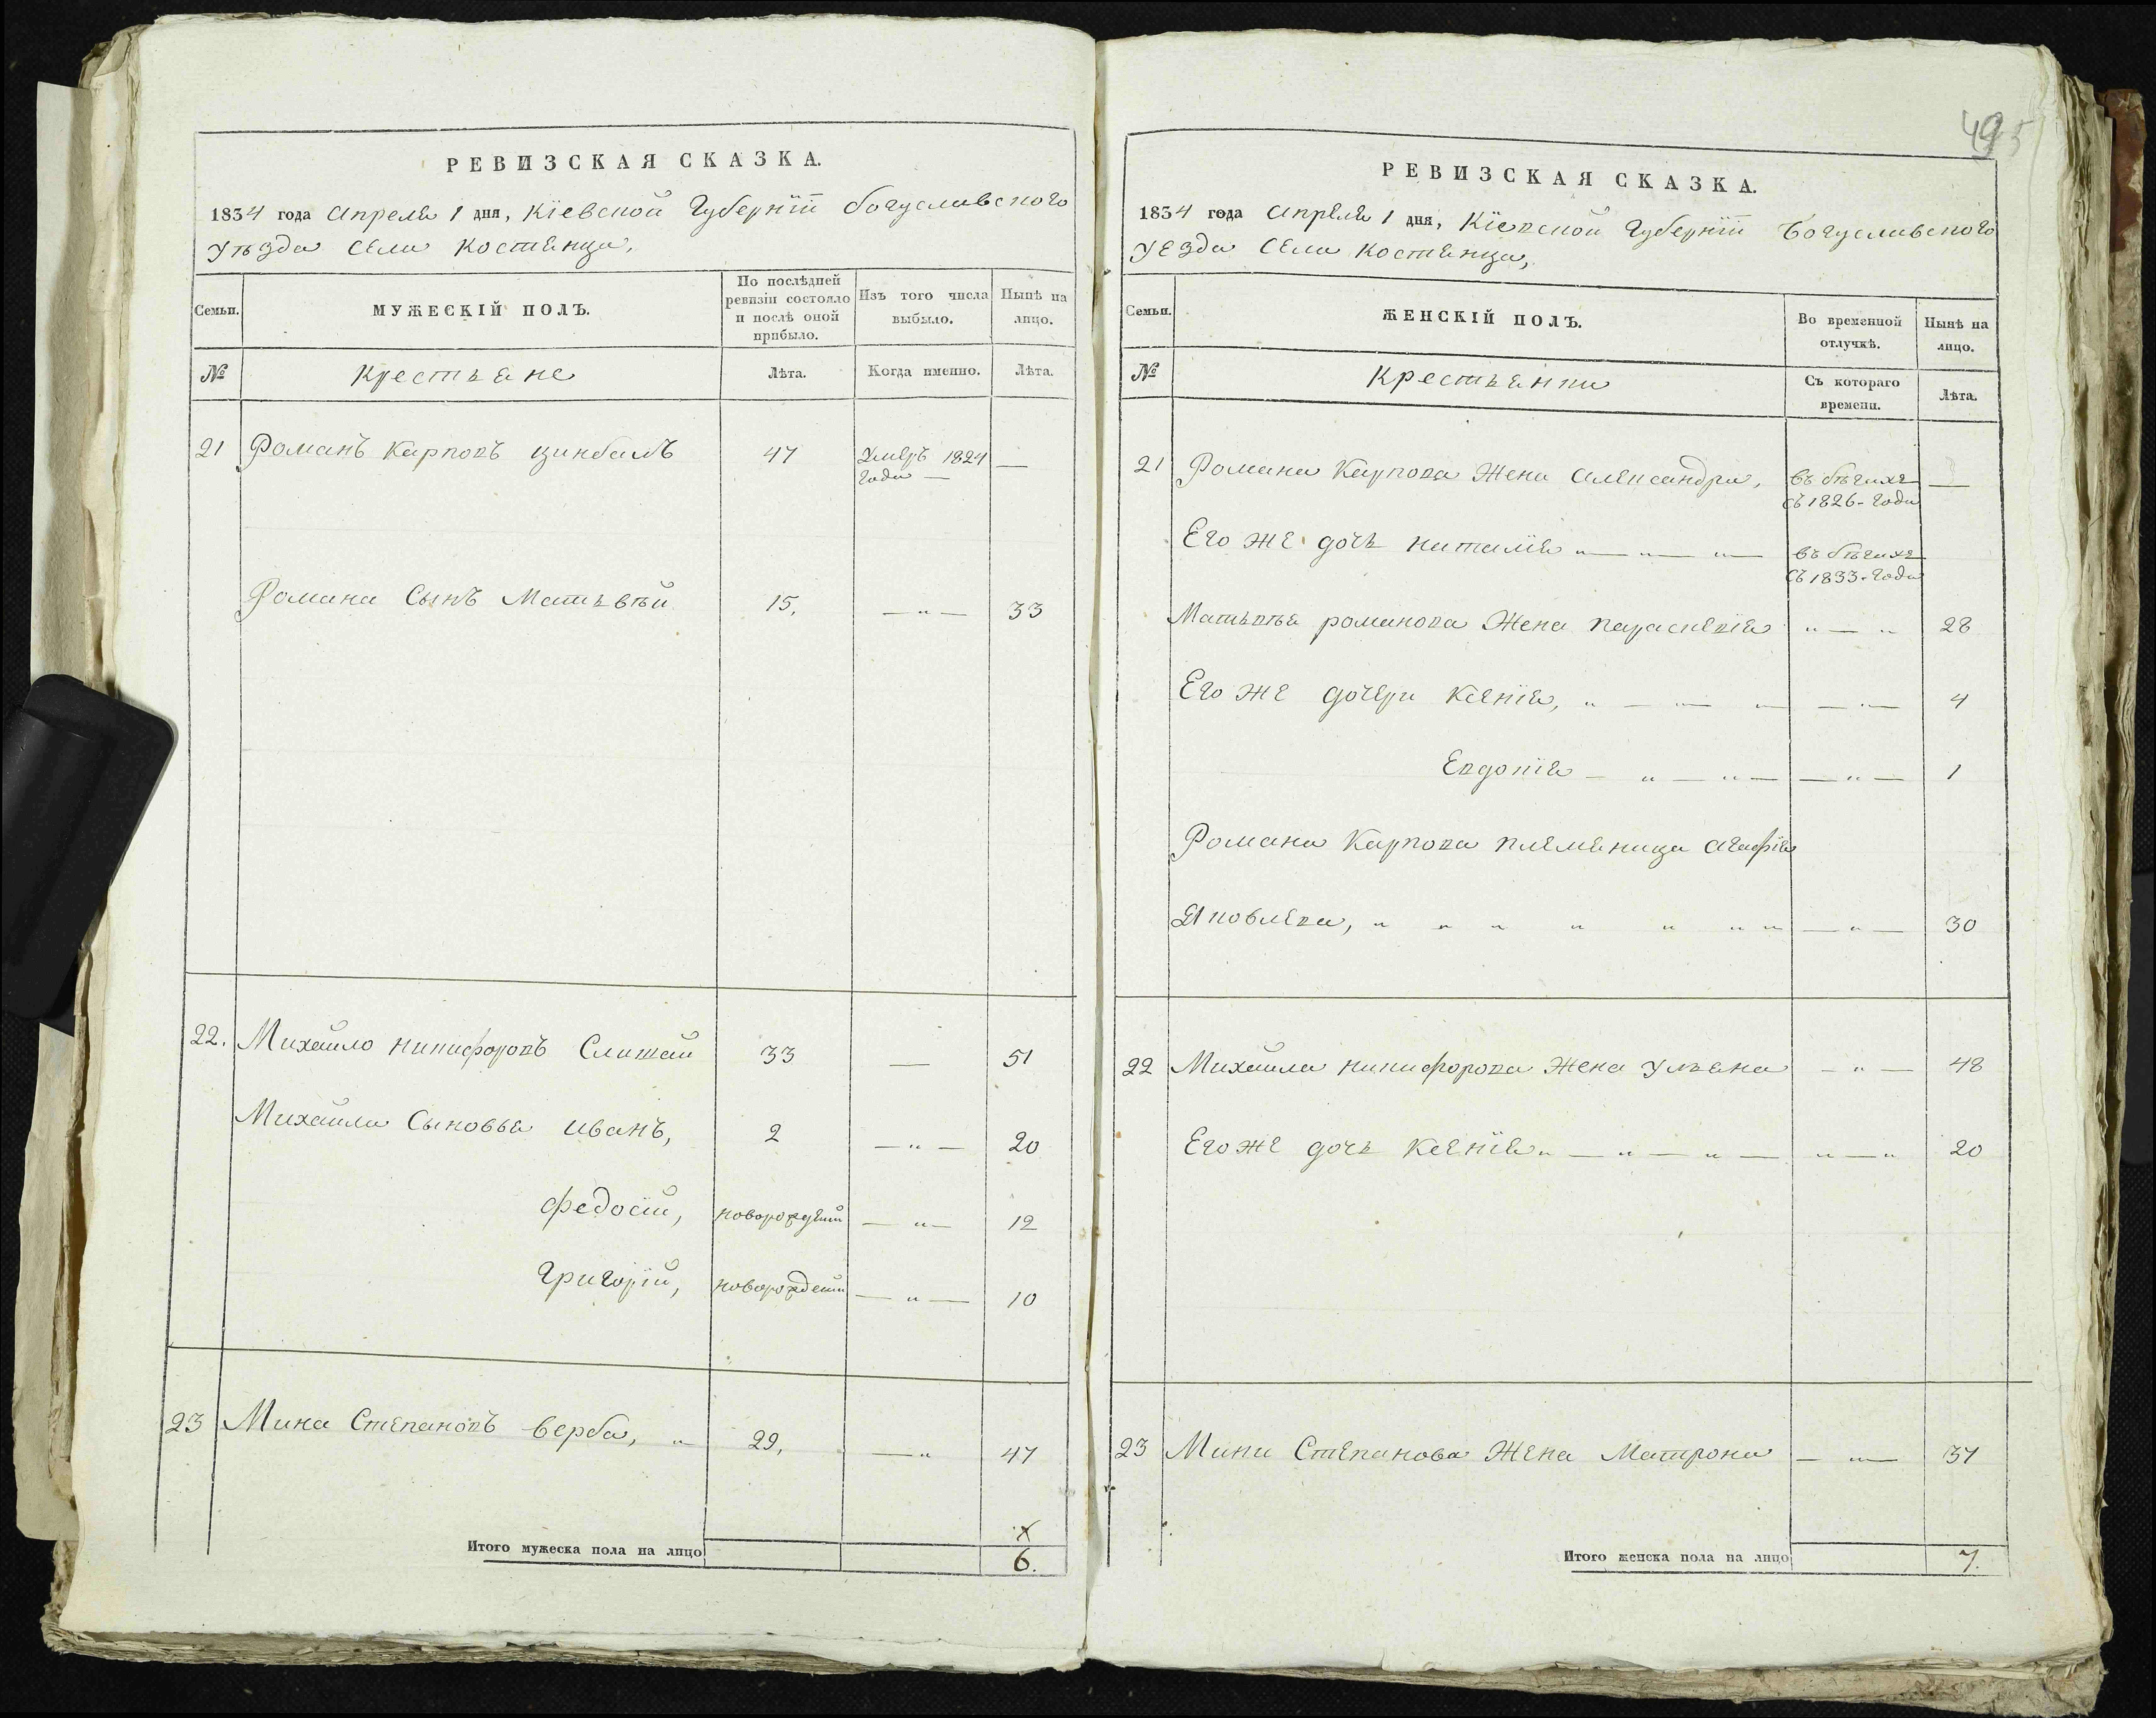 РЕВИЗСКАЯ СКАЗКА.
1834 года Апреля 1 дня, Кіевской Губерніи богуславского
Уѣзда Села Костянца,
Семьи.
МУЖЕСКІЙ ПОЛЪ.
По послѣдней ревизіи состояло и послѣ оной прибыло.
Изъ того числа выбыло.
Нынѣ на лицо.
№
Крестьяне
Лѣта.
Когда именно.
Лѣта.
21 Романъ Карповъ цинбалъ 47 Умеръ 1824 —
года —
Романа Сынъ Матьвѣй 15, — " — 33
22. Михайло никифоровъ Слишай 33 — 51
Михайла Сыновья иванъ, 2 — " — 20
Федосій, новорожденій — " — 12
Григорій, новорожденій — " — 10
23 Мина Степановъ верба, " 29, — " 47
х
Итого мужеска пола на лицо 6.
495
РЕВИЗСКАЯ СКАЗКА.
1834 года Апреля 1 дня, Кіевской Губерніи Богуславского
Уезда Села Костянца,
Семьи.
ЖЕНСКІЙ ПОЛЪ.
Во временной отлучкѣ.
Нынѣ на лицо.
№
Крестьянки
Съ котораго времени.
Лѣта.
21 Романа Карпова Жена Александра, въ бѣгахъ —
съ 1826-года
Его же дочь наталія " — " — " — въ бѣгахъ
съ 1833-года
Матьвѣя романова Жена параскевія " — " 28
Его же дочери Ксенія, " — " — " — " — 4
Евдокія — " — " — — " — 1
Романа Карпова племеница Агафія
Яковлева, " " " " " " " — " — 30
22 Михайла никифорова Жена ульяна — " — 48
Его же дочь Ксенія " — " — " — " — " 20
23 Мини Степанова Жена Матрона — " — 37
Итого женска пола на лицо 7.